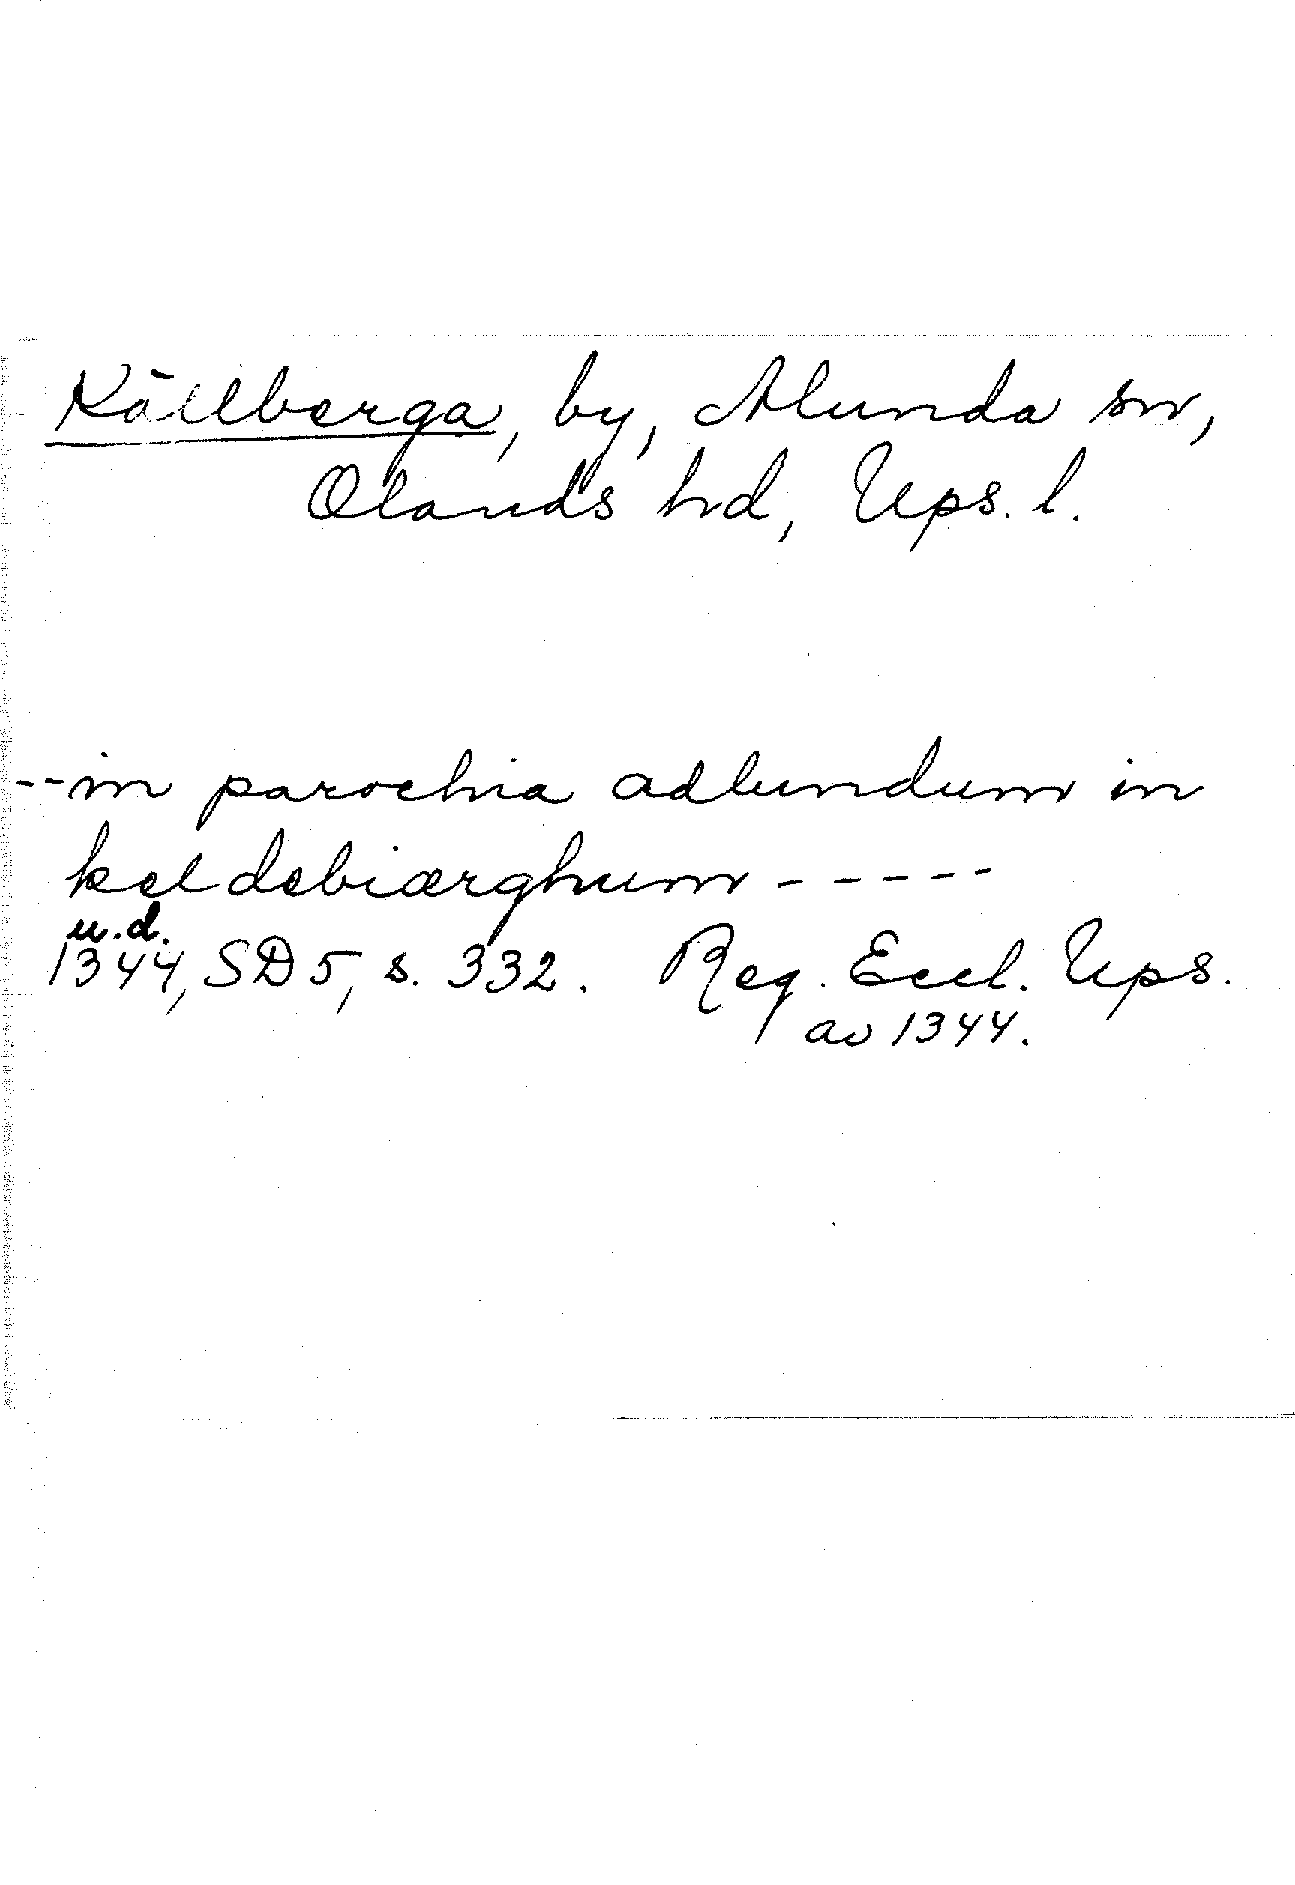 Källberga, by, Alunda sn,
Olands hd, Ups. l.
-- in parochia adlundum in
keldebiærghum - - - - -
u.d.
1344, SD 5, s. 332. Reg. Eccl. Ups.
av 1344.